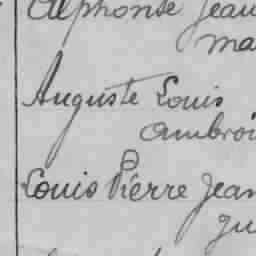 Alphonse Jean
ma
Auguste Louis
ambroi
Louis Pierre Jean
gu